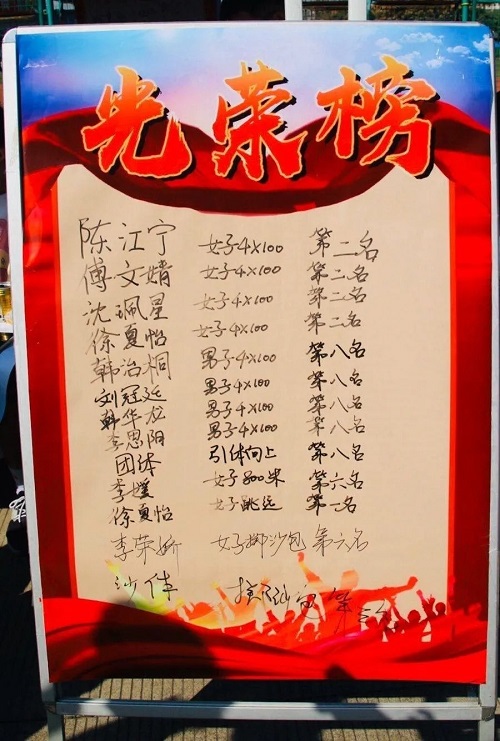 光荣榜
陈江宁 女子4×100 第二名
傅文婧 女子4×100 第二名
沈珮星 女子4×100 第二名
徐夏怡 女子4×100 第二名
韩治桐 男子4×100 第八名
刘冠廷 男子4×100 第八名
韩华龙 男子4×100 第八名
李恩阳 男子4×100 第八名
团体 引体向上 第八名
李媛 女子800米 第六名
徐夏怡 女子跳远 第一名
李荣娇 女子掷沙包 第六名